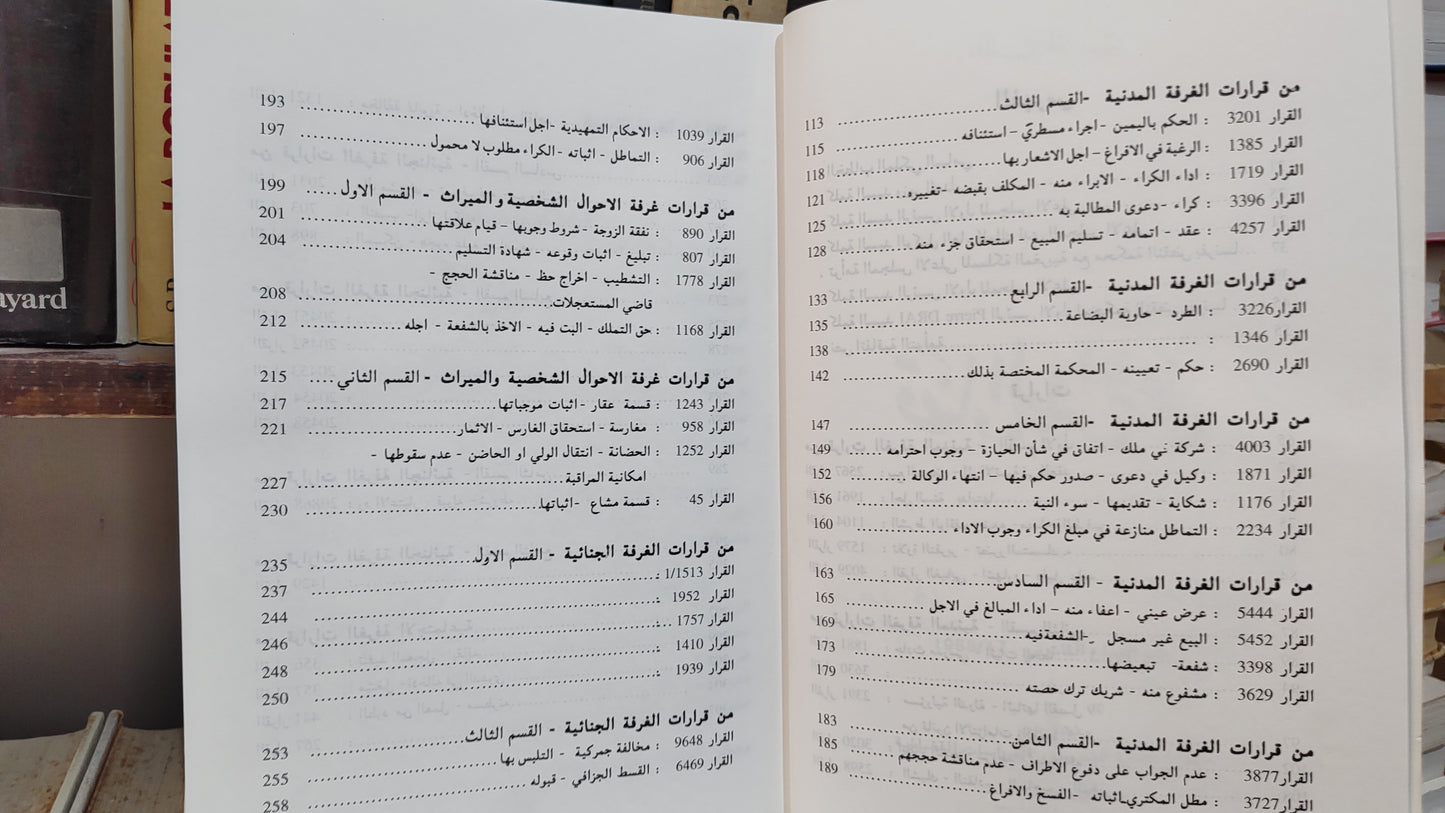 من قرارات الغرفة المدنية -القسم الثالث ........ 113
القرار 3201 : الحكم باليمين - اجراء مسطريّ - استئنافه ........ 115
القرار 1385 : الرغبة في الافراغ - اجل الاشعار بها ........ 118
القرار 1719 : اداء الكراء - الابراء منه - المكلف بقبضه -تغييره ........ 121
القرار 3396 : كراء -دعوى المطالبة به ........ 125
القرار 4257 : عقد - اتمامه - تسليم المبيع - استحقاق جزء منه ........ 128
من قرارات الغرفة المدنية -القسم الرابع ........ 133
القرار 3226 : الطرد - حاوية البضاعة ........ 135
القرار 1346 : ........ 138
القرار 2690 : حكم - تعيينه - المحكمة المختصة بذلك ........ 142
من قرارات الغرفة المدنية -القسم الخامس ........ 147
القرار 4003 : شركة ني ملك - اتفاق في شأن الحيازة - وجوب احترامه ........ 149
القرار 1871 : وكيل في دعوى - صدور حكم فيها - انتهاء الوكالة ........ 152
القرار 1176 : شكاية - تقديمها - سوء النية ........ 156
القرار 2234 : التماطل منازعة في مبلغ الكراء وجوب الاداء ........ 160
من قرارات الغرفة المدنية - القسم السادس ........ 163
القرار 5444 : عرض عيني - اعفاء منه - اداء المبالغ في الاجل ........ 165
القرار 5452 : البيع غير مسجل -الشفعةفيه ........ 169
القرار 3398 : شفعة- تبعيضها ........ 173
القرار 3629 : مشفوع منه - شريك ترك حصته ........ 179
من قرارات الغرفة المدنية -القسم الثامن ........ 183
القرار 3877 : عدم الجواب على دفوع الاطراف - عدم مناقشة حججهم ........ 185
القرار 3727 : مطل المكتري-اثباته -الفسخ والافراغ ........ 189
القرار 1039 : الاحكام التمهيدية -اجل استئنافها ........ 193
القرار 906 : التماطل - اثباته -الكراء مطلوب لا محمول ........ 197
من قرارات غرفة الاحوال الشخصية والميراث - القسم الاول ........ 199
القرار 890 : نفقة الزوجة - شروط وجوبها - قيام علاقتها ........ 201
القرار 807 : تبليغ - اثبات وقوعه - شهادة التسليم ........ 204
القرار 1778 : التشطيب - اخراج حظ - مناقشة الحجج -
قاضي المستعجلات ........ 208
القرار 1168 : حق التملك - البت فيه - الاخذ بالشفعة - اجله ........ 212
من قرارات غرفة الاحوال الشخصية والميراث -القسم الثاني .... 215
القرار 1243 : قسمة عقار - اثبات موجباتها ........ 217
القرار 958 : مغارسة - استحقاق الغارس - الاثمار ........ 221
القرار 1252 : الحضانة - انتقال الولي او الحاضن - عدم سقوطها -
امكانية المراقبة ........ 227
القرار 45 : قسمة مشاع -اثباتها ........ 230
من قرارات الغرفة الجنائية - القسم الاول ........ 235
القرار 1/1513 : ........ 237
القرار 1952 : ........ 244
القرار 1757 : ........ 246
القرار 1410 : ........ 248
القرار 1939 : ........ 250
من قرارات الغرفة الجنائية - القسم الثالث ........ 253
القرار 9648 : مخالفة جمركية - التلبس بها ........ 255
القرار 6469 : القسط الجزافي - قبوله ........ 258
ayard